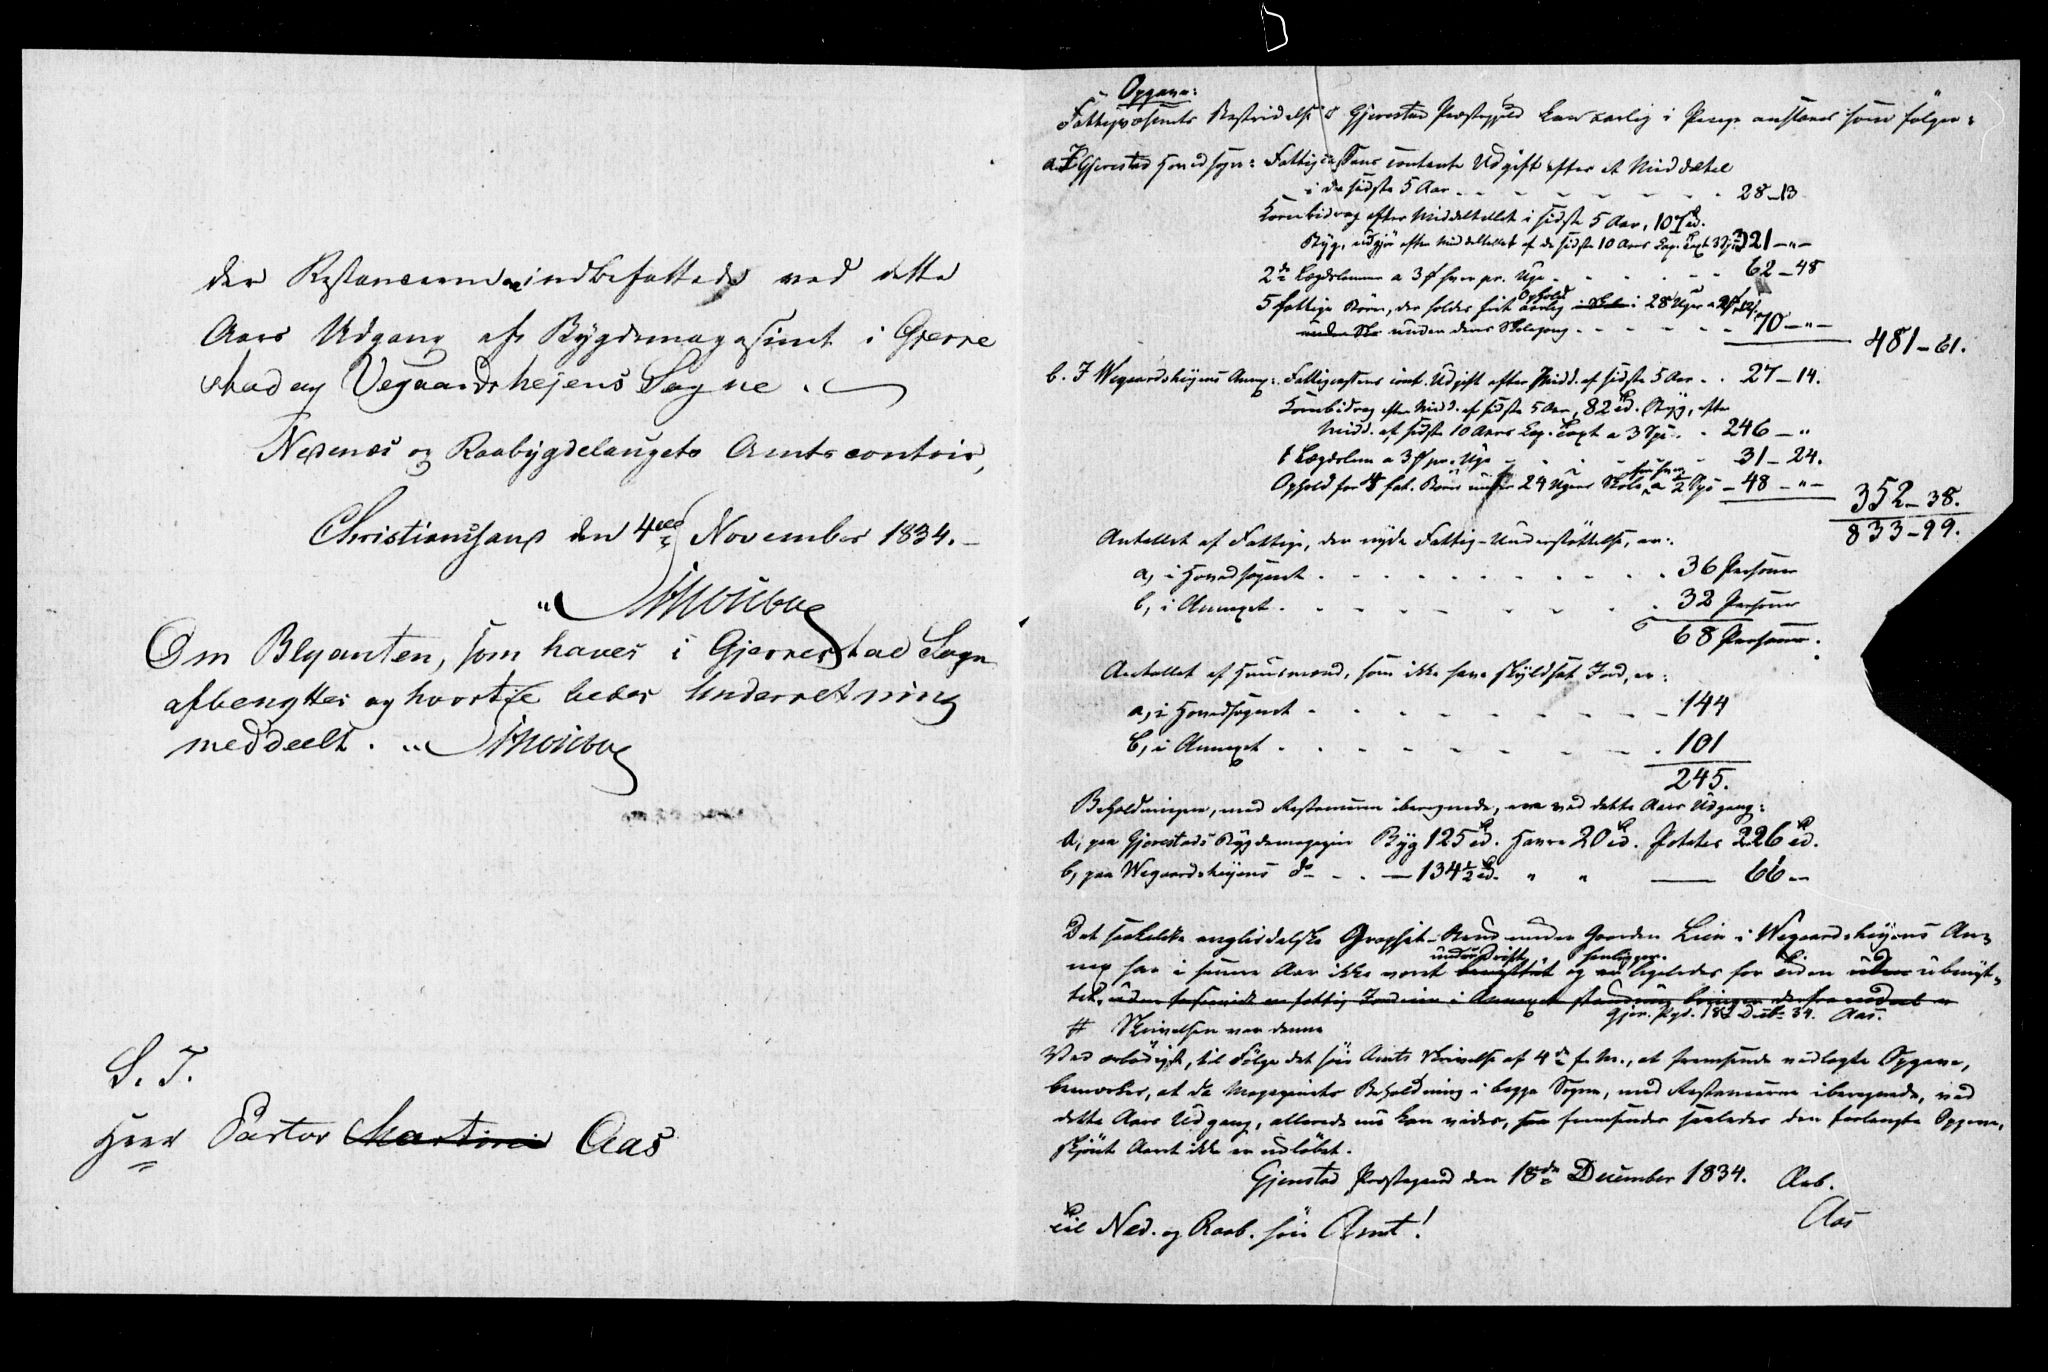 der Restancerne indbefattede ved dette
Aars Udgang af Bygdemagasinet i Gjerre
stad og Vegaardshejens Sogne.
Nedenæs og Raabygdelaugets Amtscontoir,
Christiansand den 4de November 1834.
Om Blyanten, som haves i Gjerrestad Sogn
afbenyttes og hvortil bedes Underretning
meddeelt.
S. T.
Herr Pastor Martini Aas
Opgave:
Fattigvæsenets Bestridelse i Gjerestad Præstegjeld kan aarlig i Penge ansees som følger:
a. I Gjerestad Hovedsogn: Fattigcassens contante Udgift efter et Middeltal
i de sidste 5 Aar 28-13
Kornbidrag efter Middeltallet i sidste 5 Aar, 107 Td.
Byg, udgjør efter Middeltallet af de sidste 10 Aars Cap. Taxt 3 Spd 321-"-
2de Lægdslemmer a 3 hver pr. Uge 62-48
5 fattige Børn, der holdes frit Ophold aarlig i 28 Uger
under deres Skolegang 70-"-
481-61.
b. I Wegaardsheyens Annex: Fattigcassens cont. Udgift efter Midd. af sidste 5 Aar 27-14.
Kornbidrag efter Midd. af sidste 5 Aar, 82 Td. Byg, efter
Midd. af sidste 10 Aars Cap. Taxt a 3 Spd 246-"
1 Lægdslem a 3 pr. Uge 31-24.
Ophold for 4 fat. Børn under 24 Ugers Skole, a 1/2 Spd 48-"-
352-38.
833-99.
Antallet af Fattige, der nyde Fattig-Understøttelse, er:
a, i Hovedsognet 36 Personer
b, i Annexet 32 Personer
68 Personer.
Antallet af Huusmænd, som ikke have skyldsat Jord, er:
a, i Hovedsognet 144
b, i Annexet 101
245.
Beholdningen, med Restancerne iberegnede, er ved dette Aars Udgang:
a, paa Gjerestads Bygdemagazin Byg 125 Td. Havre 20 Td. Potetes 226 Td.
b, paa Wegaardsheyens do 134 1/2 Td. " " 66-
Det saakaldte englidalske Graphit-Brud under Gaarden Lien i Wegaardsheyens An-
nex har i senere Aar ikke været benyttet under Drift, og er henligger ligeledes for Tiden uden ubenyt-
tet,
Gjer. Pgd. 18 Decbr 34. Aas.
# Skrivelsen var denne
Ved ærbødigst, til Følge det høie Amts Skrivelse af 4de f. M., at fremsende vedlagte Opgave,
bemærkes, at da Magazinets Beholdning i begge Sogne, med Restancerne iberegnede, ved
dette Aars Udgang, allerede nu kan vides, fremsendes saaledes den forlangte Opgave,
skjønt Aaret ikke er udløbet.
Gjerestad Præstegaard den 18de December 1834. Ærb.
Aas
Til Ned. og Raab. høie Amt!